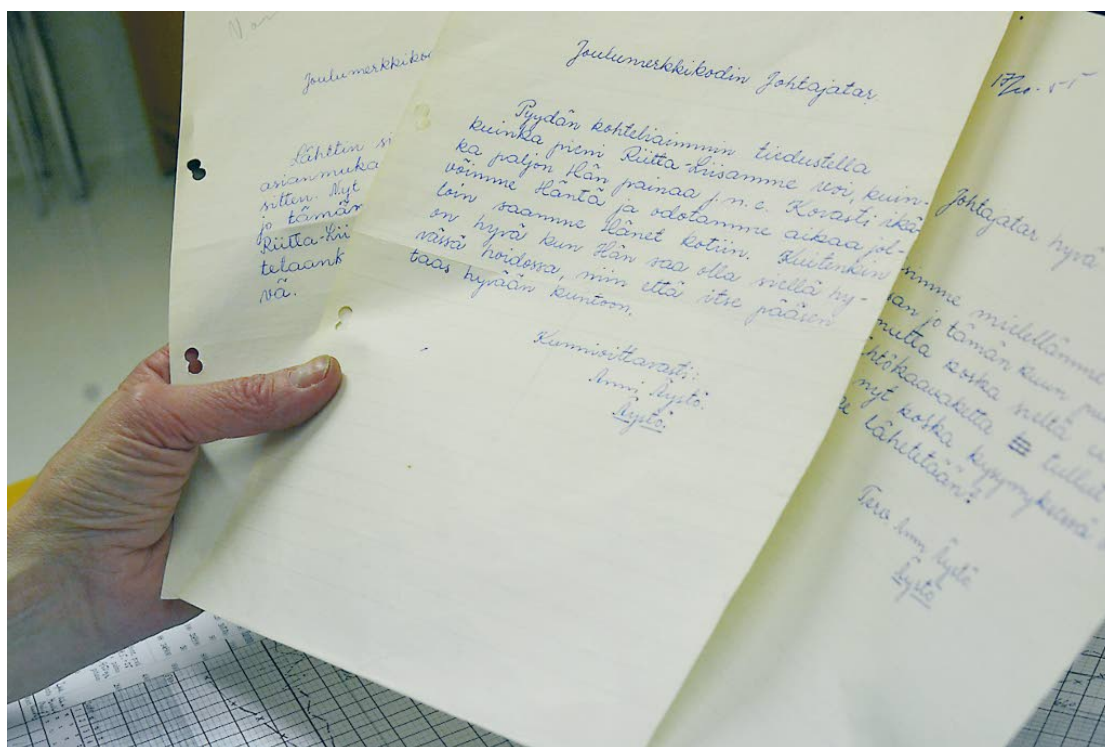 Joulumerkkiko
Lähetin si
asianmuka
sitten. Nyt
jo tämän
Riitta-Lii
telaank
vä.
Joulumerkkikodin Johtajatar.
Pyydän kohteliaimmin tiedustella
kuinka pieni Riitta-Liisamme voi, kuin-
ka paljon Hän painaa j.n.e. Kovasti ikä-
vöimme Häntä ja odotamme aikaa jol-
loin saamme Hänet kotiin. Kuitenkin
on hyvä kun Hän saa olla siellä hy-
vässä hoidossa, niin että itse pääsen
taas hyvään kuntoon.
Kunnioittavasti:
Anni Kystö.
Kystö.
Johtajatar hyvä
simme mielellämme
an jo tämän kuun
mutta koska sieltä ei
htökaavaketta tullut
nyt koska kysymyksessä
lähetetään?
Terv. Anni Kystö
Kystö